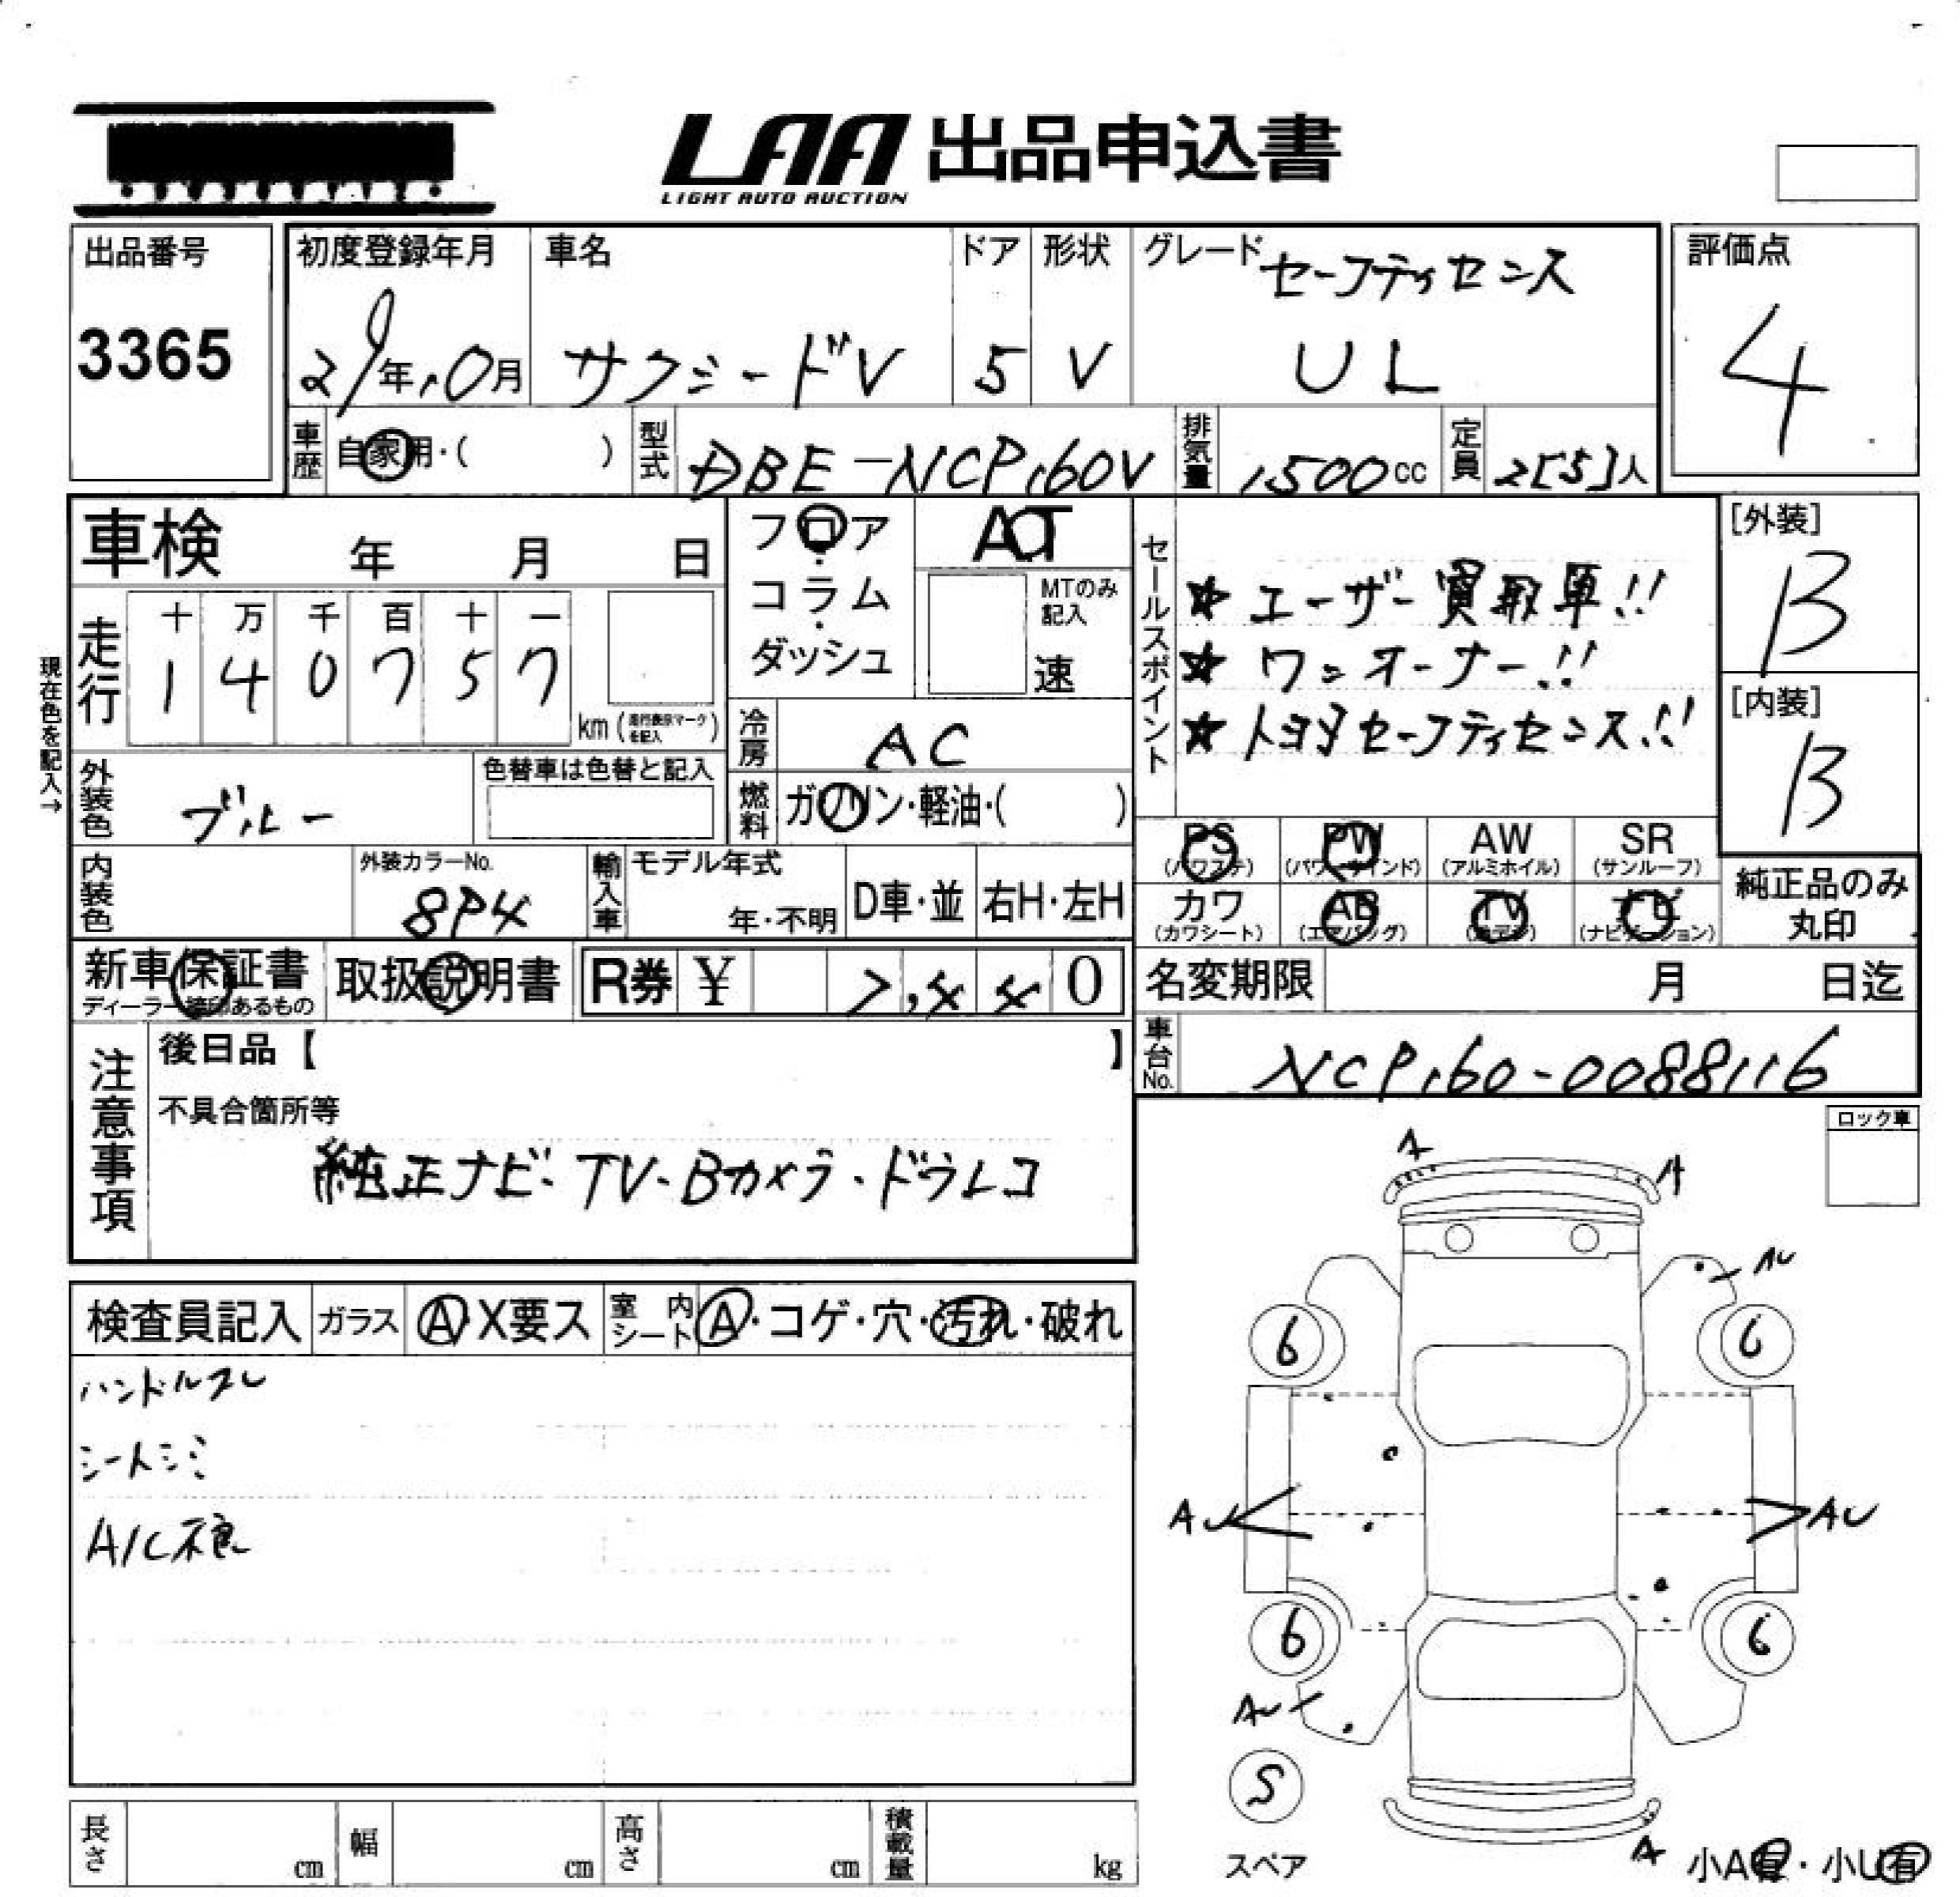 LAA 出品申込書
LIGHT AUTO AUCTION
出品番号
3365
初度登録年月
29年10月
車名
サクシードV
ドア
5
形状
V
グレード
セーフティセンス
UL
評価点
4
車歴
自家用・( )
型式
DBE-NCP160V
排気量
1500cc
定員
2[5]人
車検 年 月 日
フロア・コラム・ダッシュ
AT
MTのみ記入
速
セールスポイント
☆ エーザー買取車!!
☆ ワンオーナー!!
☆ トヨタセーフティセンス!!
[外装]
B
[内装]
B
現在色を記入→
走行
十 万 千 百 十 一
1 4 0 7 5 7
km(走行表示マークを記入)
冷房
AC
燃料
ガソリン・軽油・( )
外装色
ブルー
色替車は色替と記入
内装色
外装カラーNo.
8P4
輸入車
モデル年式
年・不明
D車・並
右H・左H
PS
(パワステ)
PW
(パワーウインド)
AW
(アルミホイル)
SR
(サンルーフ)
カワ
(カワシート)
AB
(エアバッグ)
TV
ナビ
(ナビゲーション)
純正品のみ
丸印
新車保証書
ディーラー捺印あるもの
取扱説明書
R券 ¥ 0
名変期限 月 日迄
車台No.
NCP160-0088116
注意事項
後日品【 】
不具合箇所等
純正ナビ・TV・Bカメラ・ドラレコ
ロック車
検査員記入
ガラス
A・X要ス
室内シート
A・コゲ・穴・汚れ・破れ
ハンドルスレ
シートシミ
A/C不良
A
A
AU
6
6
AU
AU
6
6
AU
S
スペア
A
小A有・小U有
長さ cm
幅 cm
高さ cm
積載量 kg